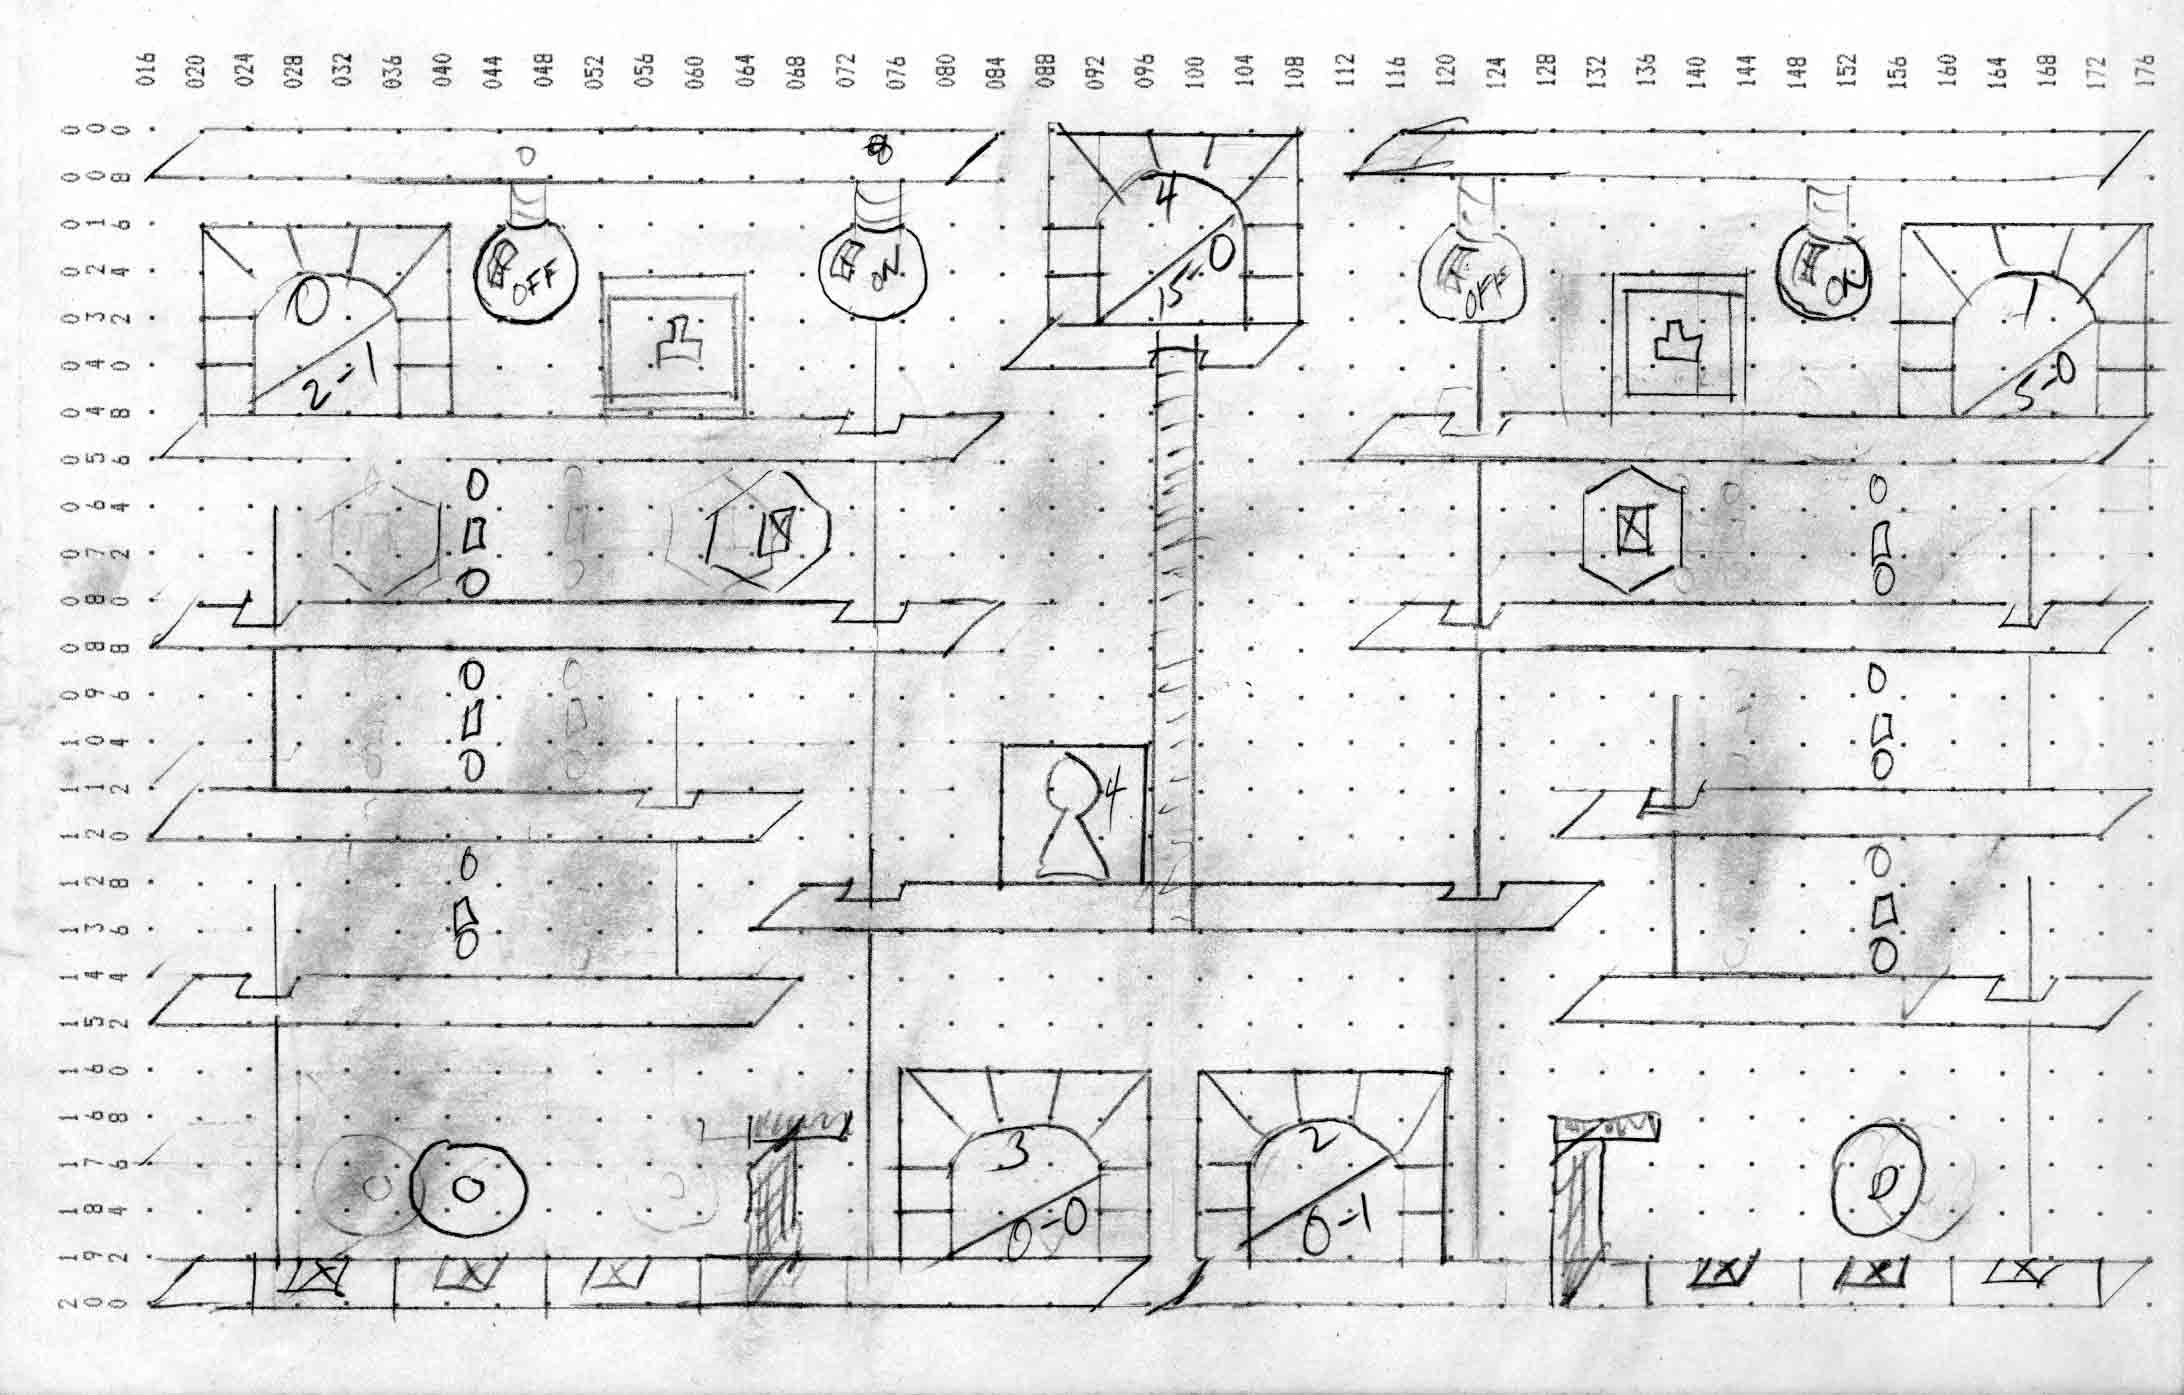 016 020 024 028 032 036 040 044 048 052 056 060 064 068 072 076 080 084 088 092 096 100 104 108 112 116 120 124 128 132 136 140 144 148 152 156 160 164 168 172 176
000
008
016
024
032
040
048
056
064
072
080
088
096
104
112
120
128
136
144
152
160
168
176
184
192
200
0
2-1
OFF
ON
4
15-0
OFF
ON
1
5-0
4
3
0-0
2
0-1